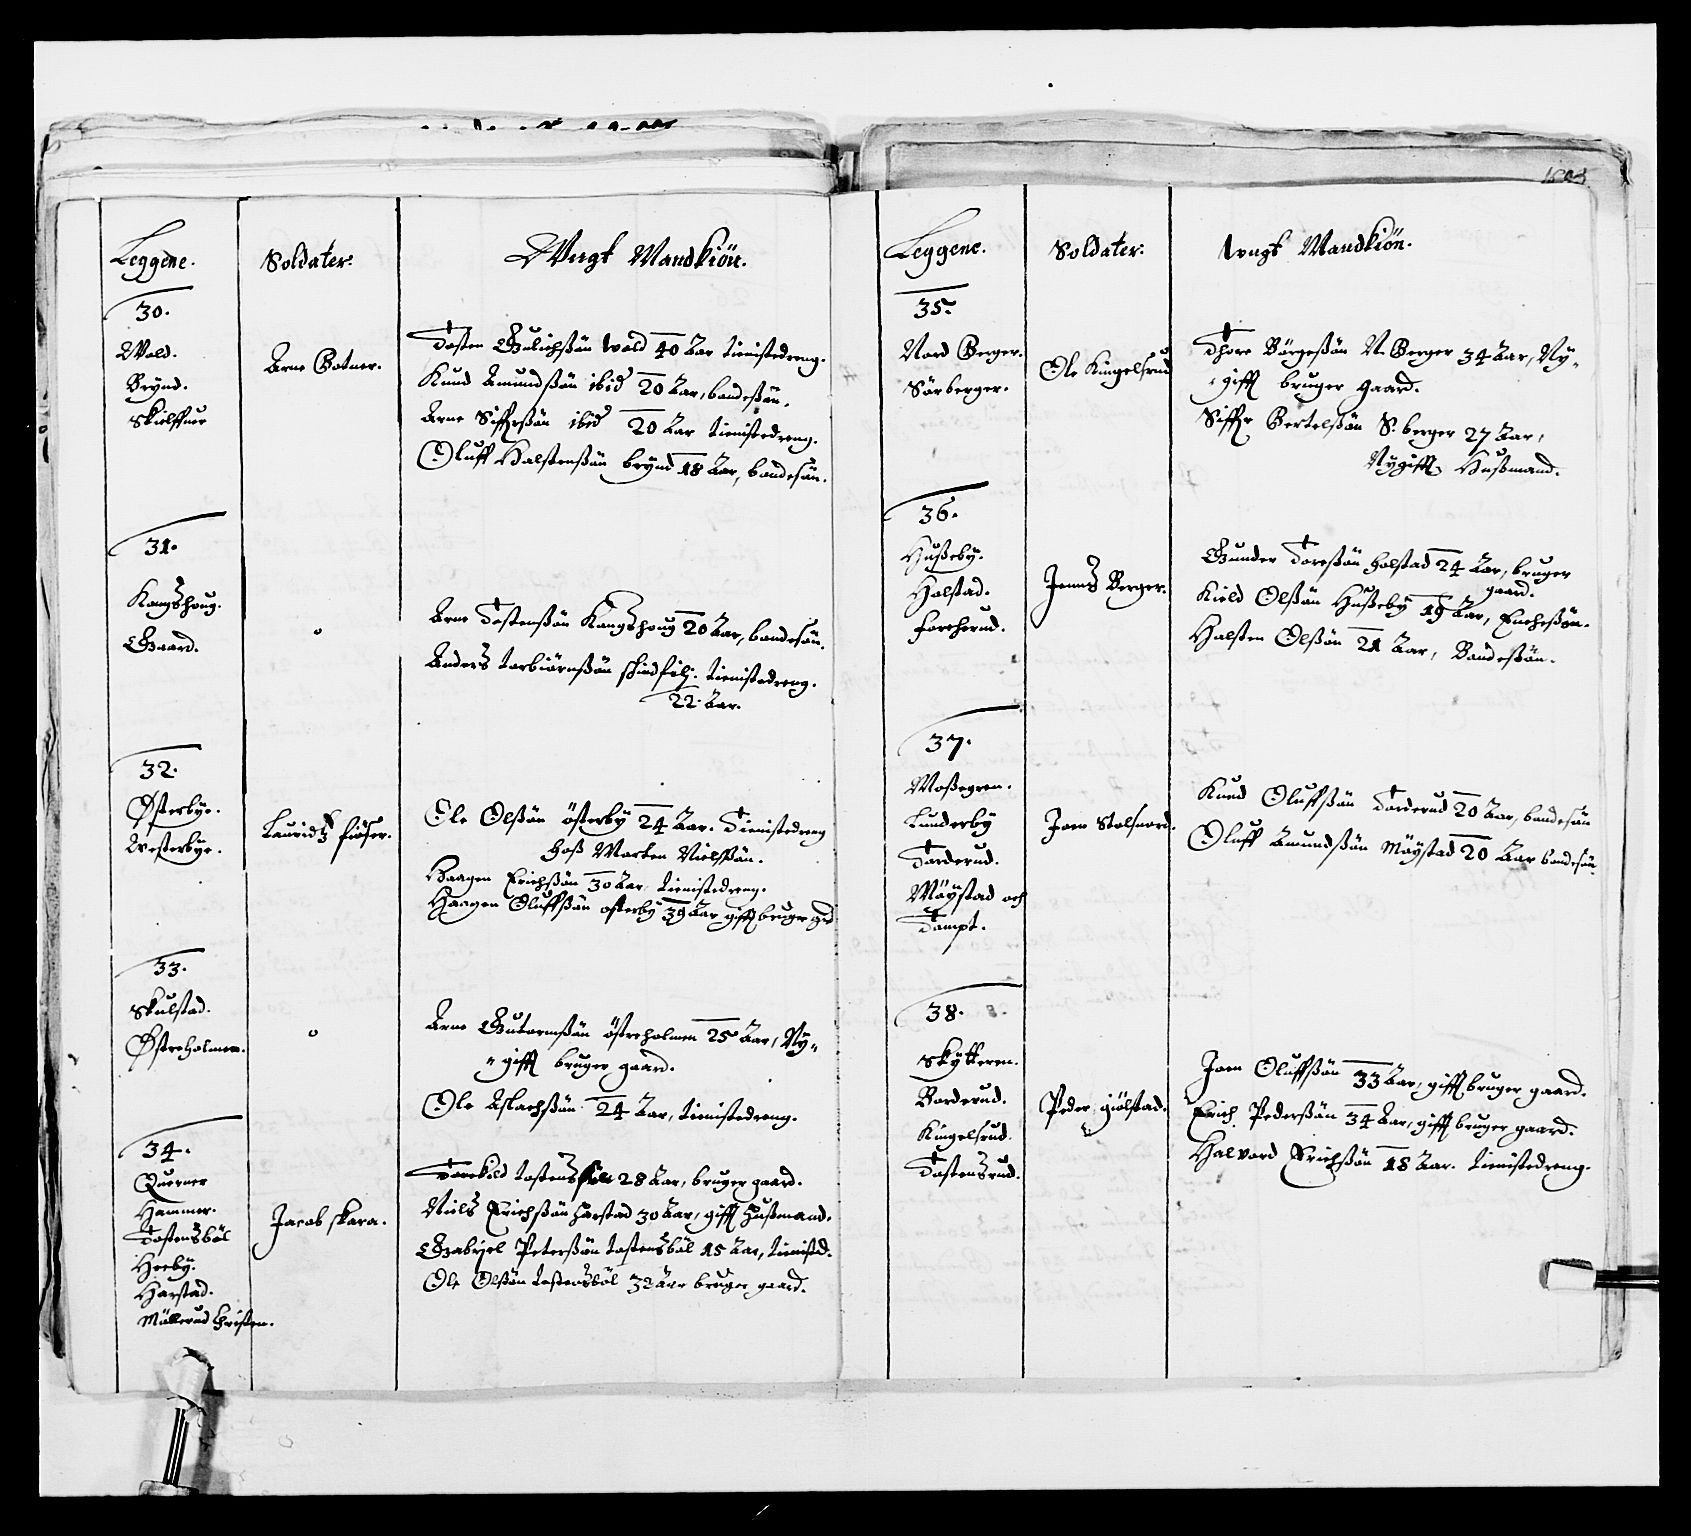 Leggene. Soldater: Wngt Mandkiön.
30.
Wold.
Brÿnd.
Skielffuer
Arne Botner.
Tosten Gulichsön wold 40 Aar tienistedreng.
Knud Amundsön ibid 20 Aar, bondesön.
Arne Siffrsön ibid 20 Aar tienistedreng.
Oluff Halstensön brÿnd 18 Aar, bondesön.
31.
Kongshoug.
Gaard.
o
Arne Tostensön Kongshoug 20 Aar, bondesön.
Anders torbiörnsön tienistedreng.
22 Aar.
32.
Østerbÿe.
Westerbÿe.
Lauridtz
Ole Olsön österbÿ 24 Aar. Tienistedreng
hoß Morten Nielsön.
Haagen Erichsön 30 Aar, tienistedreng.
Haagen Oluffsön osterbÿ 39 Aar gifft bruger grd
33.
Skulstad.
Østreholmen.
o
Arne Gutormsön östreholmen 25 Aar, Nÿ„
„gifft bruger gaard.
Ole Aslachsön 24 Aar, tienistedreng.
34.
Querner
Hammer.
Tostensböl
Heebÿ.
Harstad.
Müllerud Christen.
Jacob skara.
Torekild tostens 28 Aar, bruger gaard.
Niels Erichsön harstad 30 Aar, gifft Husmand.
Gabriel Petersön tostensböl 15 Aar, tienistd.
Ole Olsön tostensböl 32 Aar bruger gaard.
Leggene. Soldater: wngt Mandkiön.
35.
Nord Berger.
Sörberger.
Ole Kingelsrud
Thore Börgesön N. Berger 34 Aar, Nÿ„
„gifft bruger gaard.
Siffr Bertelsön S. berger 27 Aar,
Nygifft Husmand.
36.
Hußebÿ.
Holstad.
forcherud.
Jens Berger.
Gunder Toresön holstad 24 Aar, bruger
gaard.
Kield Olsön Hußebÿ 19 Aar, Enchesön.
Halsten Olsön 21 Aar, Bondesön.
37.
Moßegren.
Lunderbÿ
Torderud.
Möÿstad och
Tompt.
Joen Stolsnord.
Knud Oluffsön Torderud 20 Aar, bondesön
Oluff Amundsön Möÿstad 20 Aar bondesön
38.
Skÿtteren.
Borderud.
Kingelsrud.
Tostensrud.
Peder giölstad.
Joen Oluffsön 33 Aar, gifft bruger gaard.
Erich Pedersön 34 Aar, gifft bruger gaard.
Halvord Erichsön 18 Aar. tienistedreng.